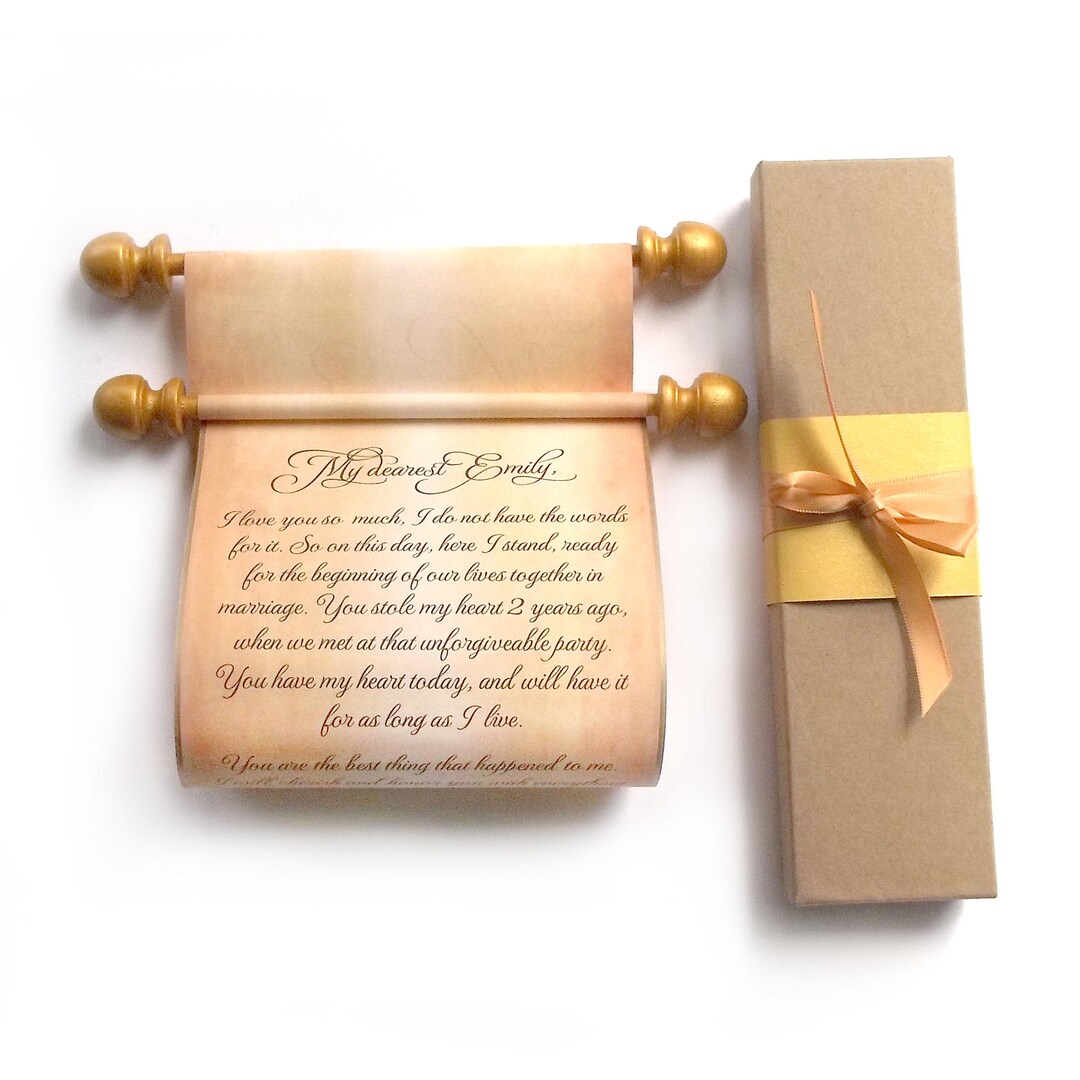 My dearest Emily,
I love you so much, I do not have the words
for it. So on this day, here I stand, ready
for the beginning of our lives together in
marriage. You stole my heart 2 years ago,
when we met at that unforgiveable party.
You have my heart today, and will have it
for as long as I live.
You are the best thing that happened to me.
I will cherish and honor you with everything